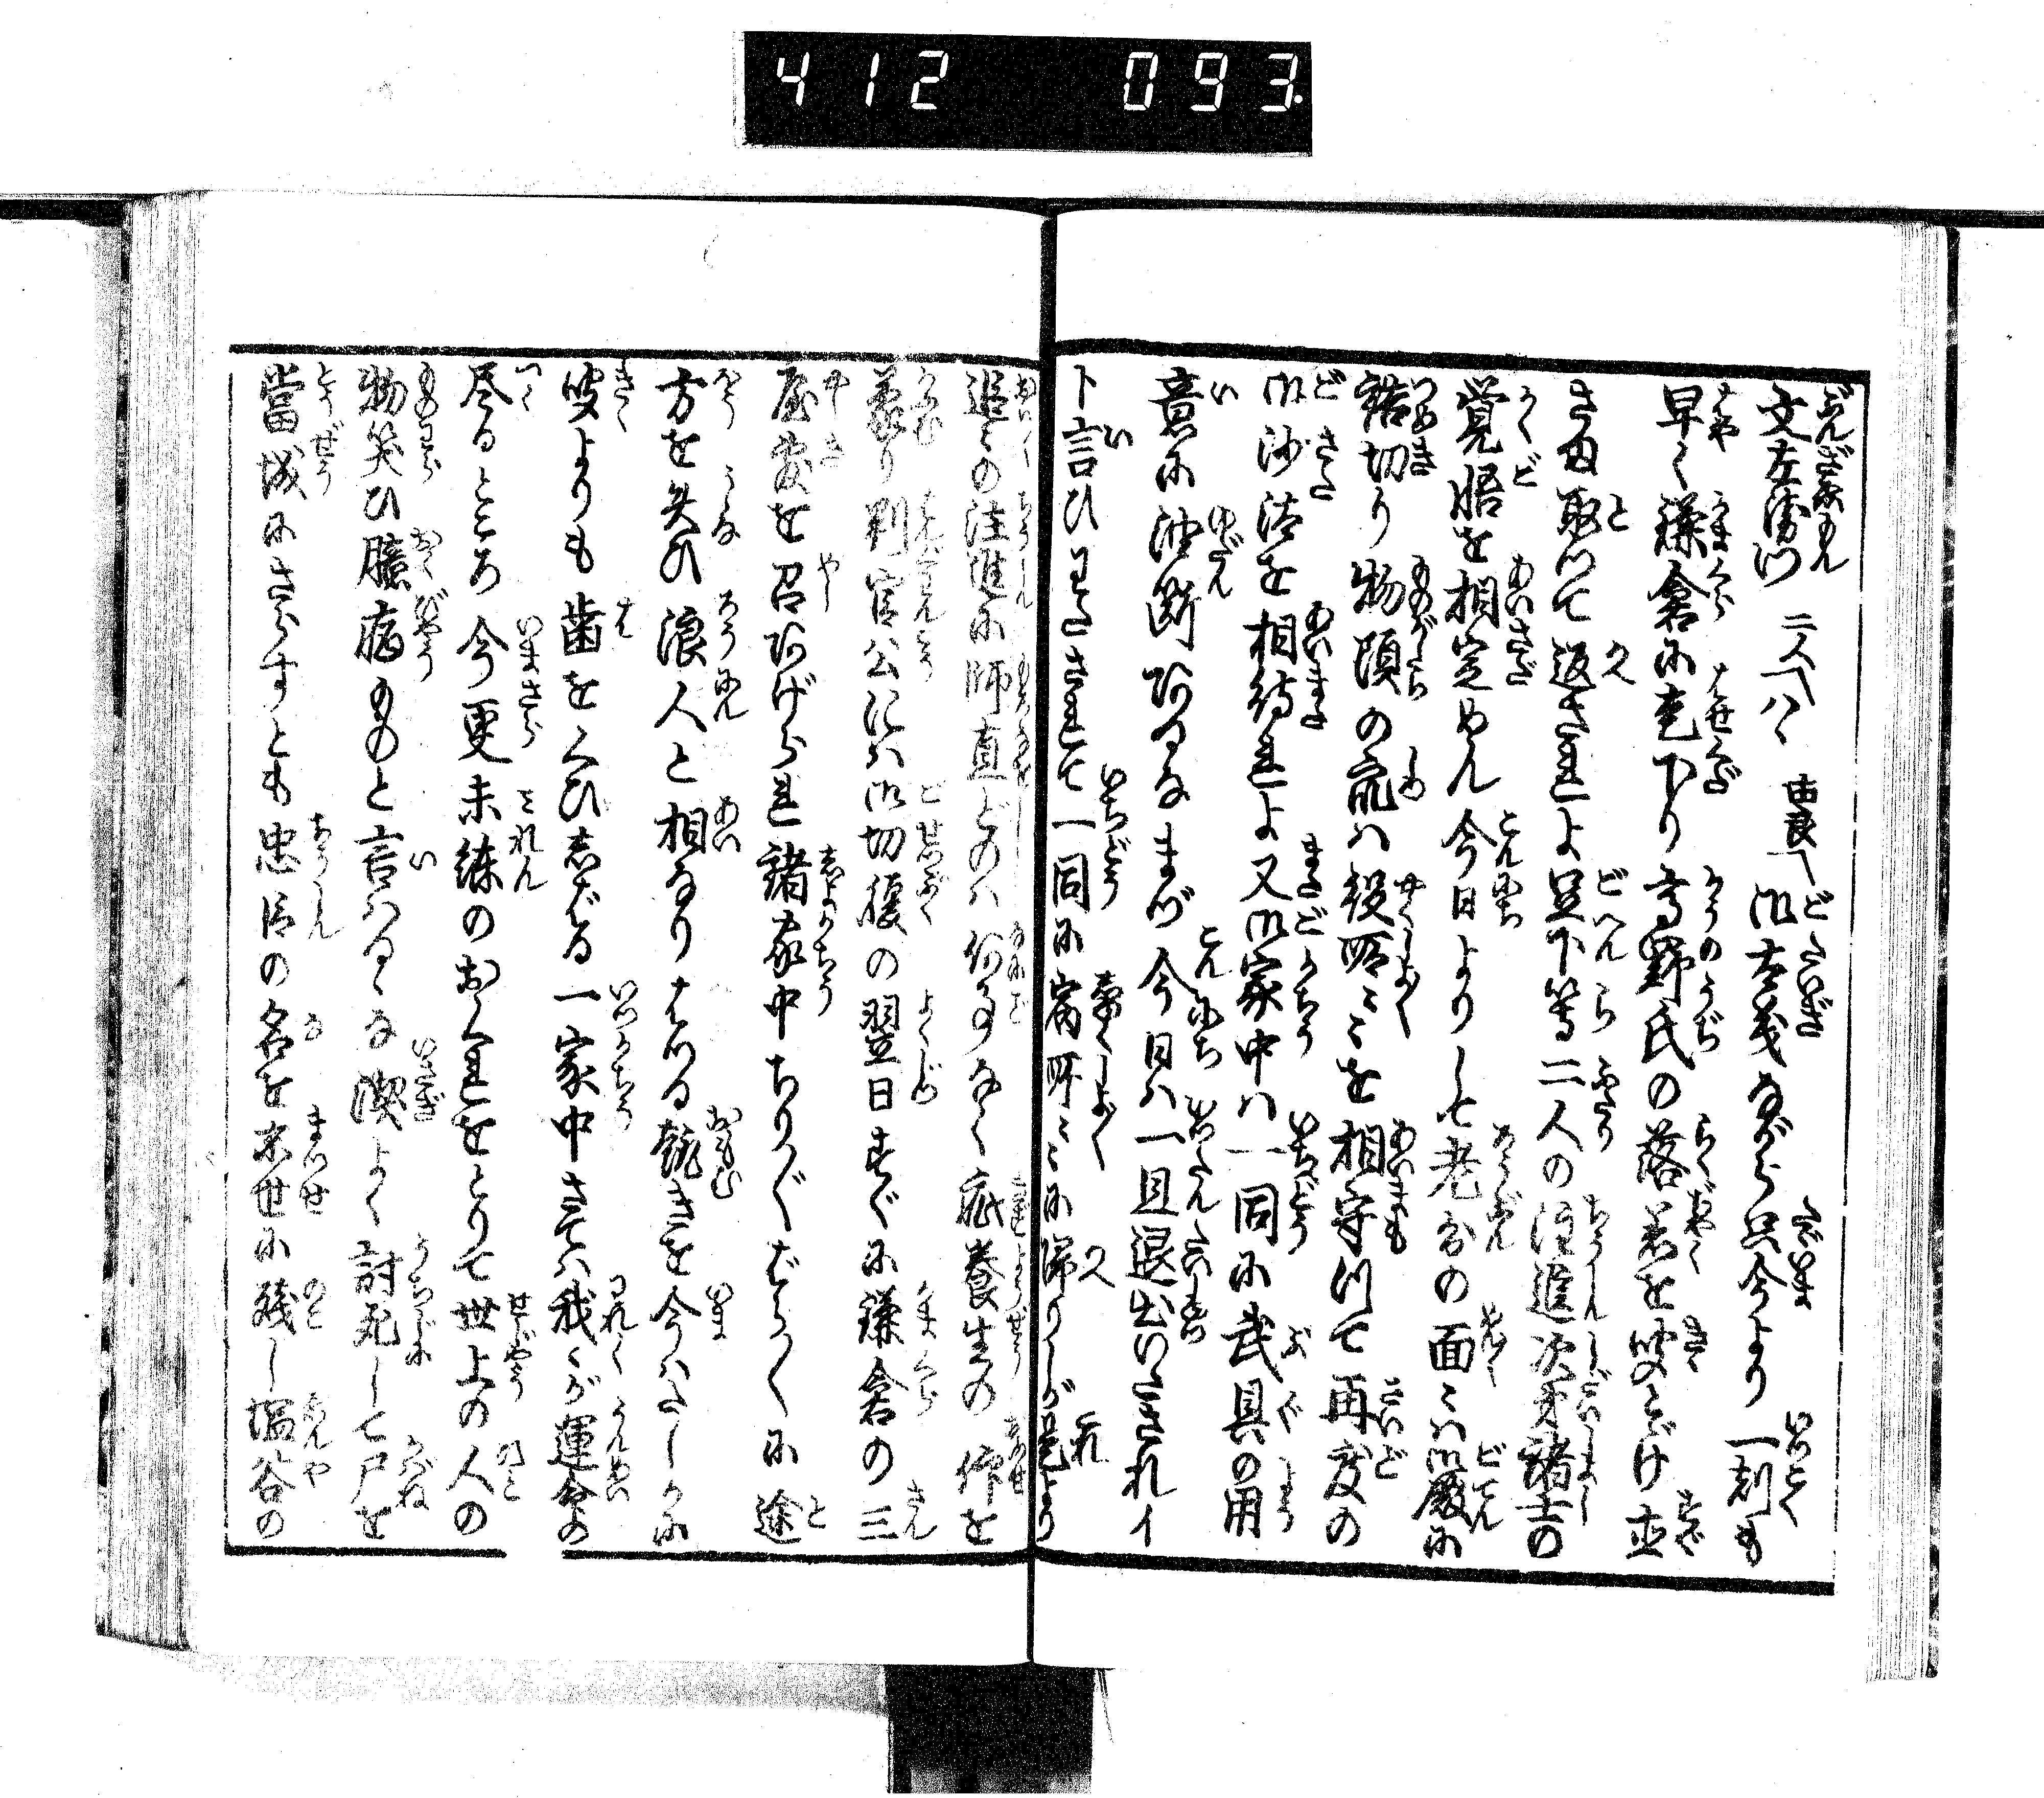 412 093.
文左衛門 二人ハヽ 由良 御大義ながら只今より一刻も
早く鎌倉に走下り高野氏の落着を安とゞけ立
さ取つて返されよ足下等二人の注進次第諸士の
覚悟を相定めん今日よりして老分の面々ハ御殿に
詰切り物頭の衆ハ役所々を相守りて再度の
御沙汰を相待れよ又御家中ハ一同に武具の用
意に油断あるなまづ今日ハ一旦退出いたされイ
ト言ひわたされて一同に病所々に帰りしが是より
追々の注進に師直どのハ何事なく疵養生の仰を
蒙り判官公にハ御切腹の翌日すぐに鎌倉の三
屋敷を召あげられ諸家中ちりぐばらくに途
方を失ひ浪人と相なりたる趣きを今ハたしかに
安よりも歯をくひしばる一家中さてハ我々が運命の
尽るところ今更未練のおくれをとりて世上の人の
物笑ひ臆病ものと言ハるゝな潔よく討死して尸を
當城にさらすとも忠臣の名を末世に残し塩谷の